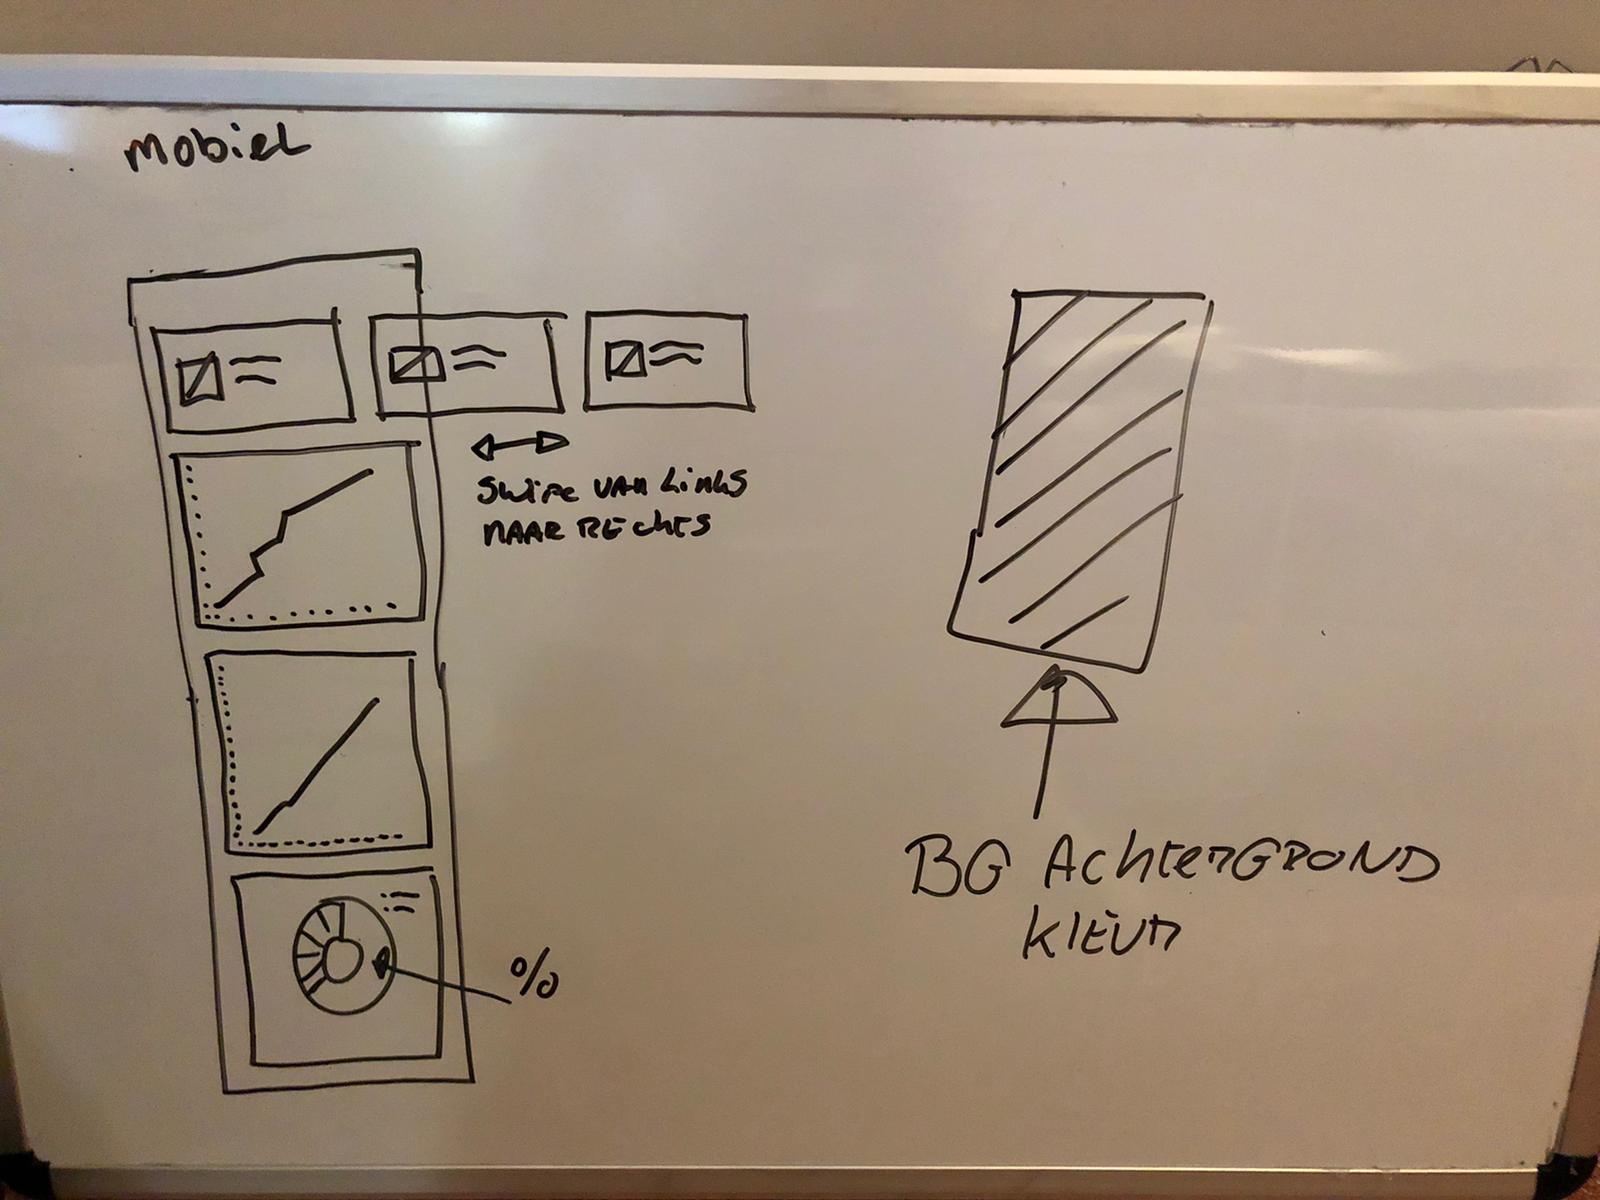 mobiel
Swipe van Links
naar Rechts
%
BG Achtergrond
kleur